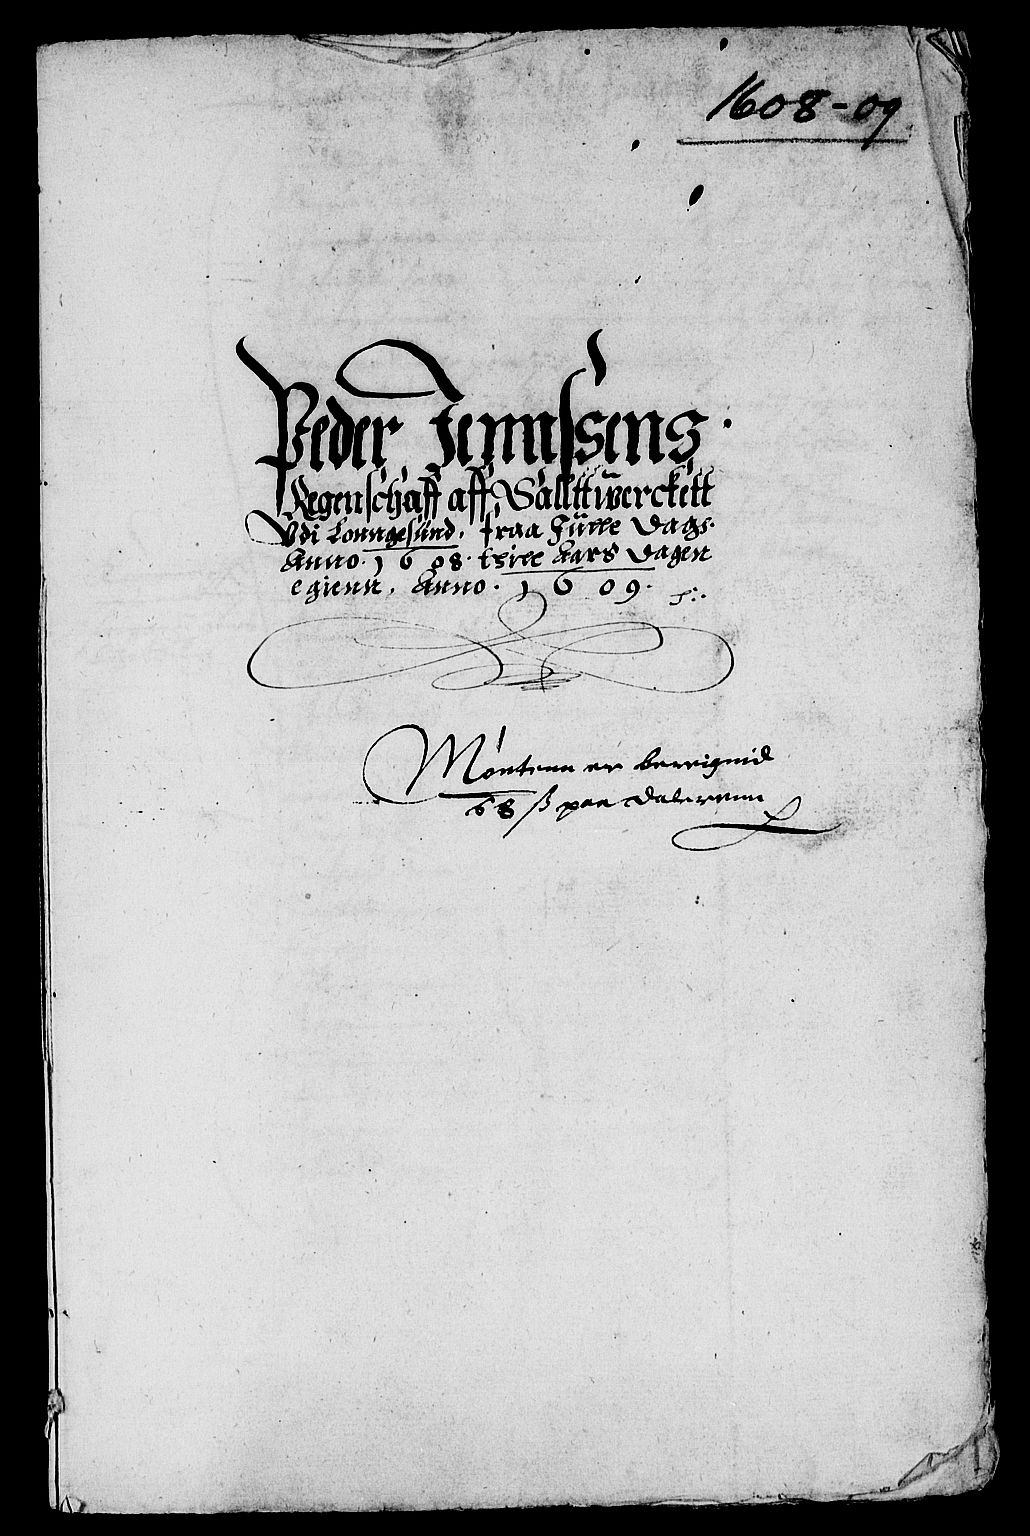 1608-09
Peder Jennssens
Regenschaff aff Sallttwerckett
Vdi Lonngesund, fraa Fylle Dags
Anno. 1608. thill Aars Dagen
egienn. Anno. 1609.
Møntenn er bereignid
68 ß paa dalerenn